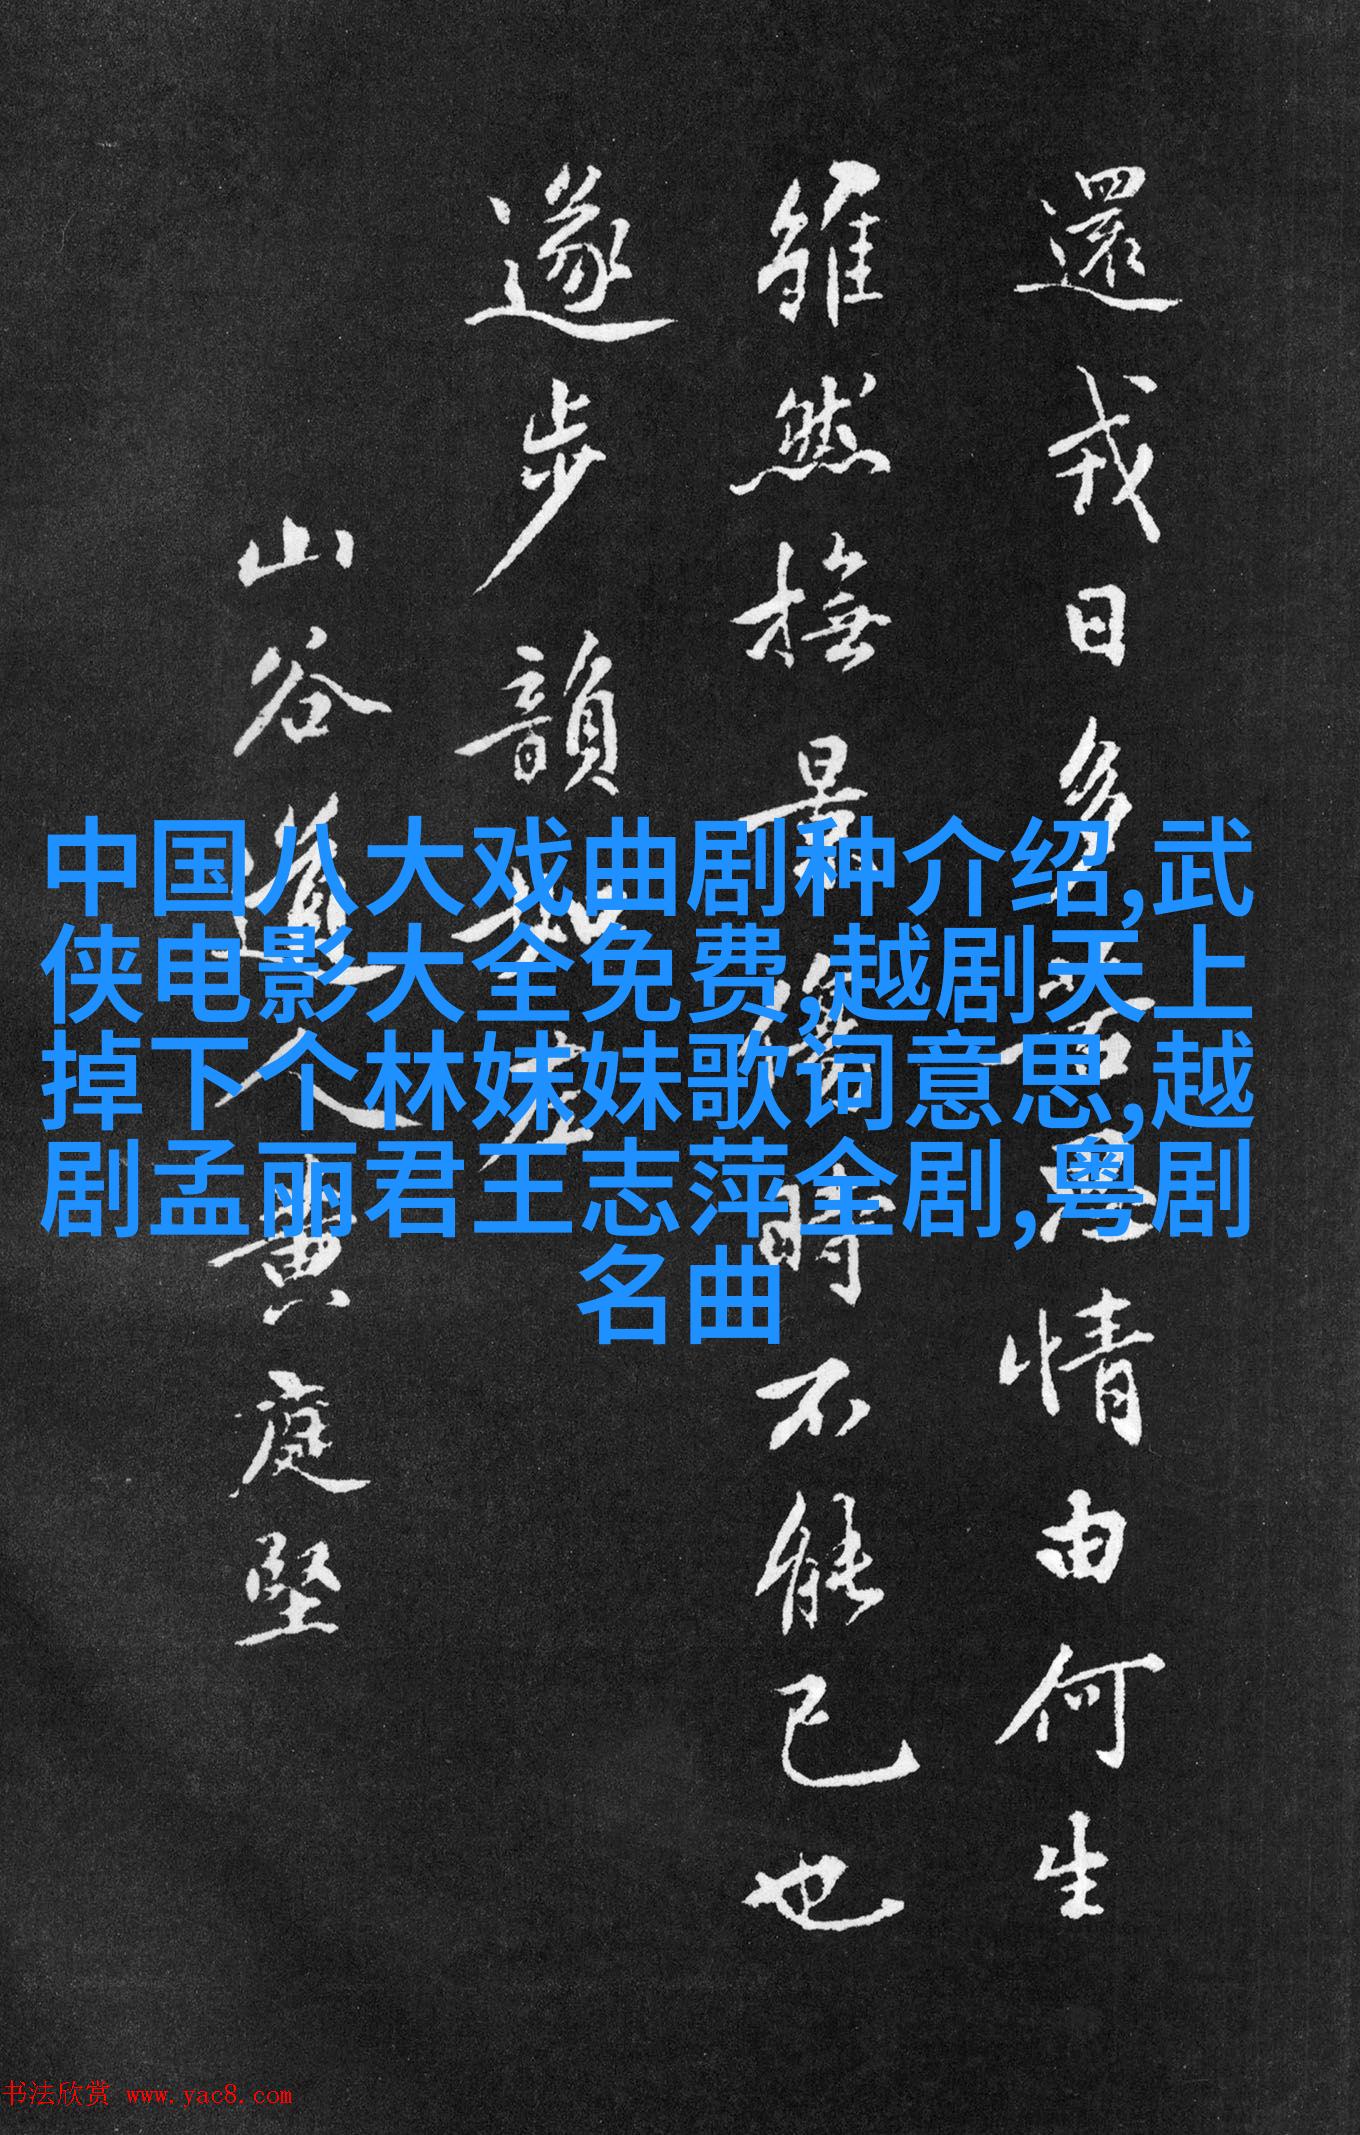 還戎日多情由何生
雖然撫景傷時不能已也
遂步韻如左
山谷道人黄庭堅
中国八大戏曲剧种介绍,武
侠电影大全免费,越剧天上
掉下个林妹妹歌词意思,越
剧孟丽君王志萍全剧,粤剧
名曲
书法欣赏 www.yac8.com